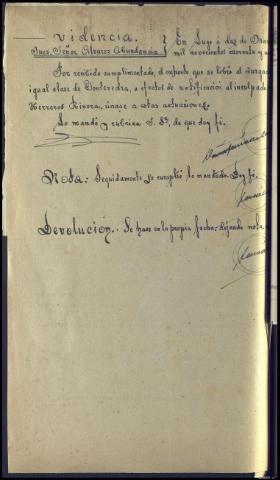 videncia. } En Lugo á diez de
Juez, Señor Alvarez Abundancia } mil novecientos cuarenta y
Por recibido cumplimentado, el exhorto que se libró al Juzgado
igual clase de Pontevedra, a efectos de notificación al inculpado
Herreros Rivera, únase a estas actuaciones.
Lo mandó y rubrica S. Sª, de que doy fé.
Nota: Seguidamente se cumplió lo mandado. Doy fé.
Devolucion.- Se hace en la propia fecha; dejando nota